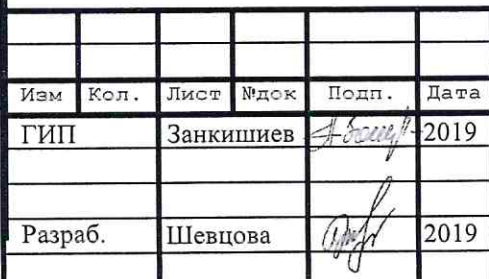 Изм Кол. Лист №док Подп. Дата
ГИП Занкишиев 2019
Разраб. Шевцова 2019